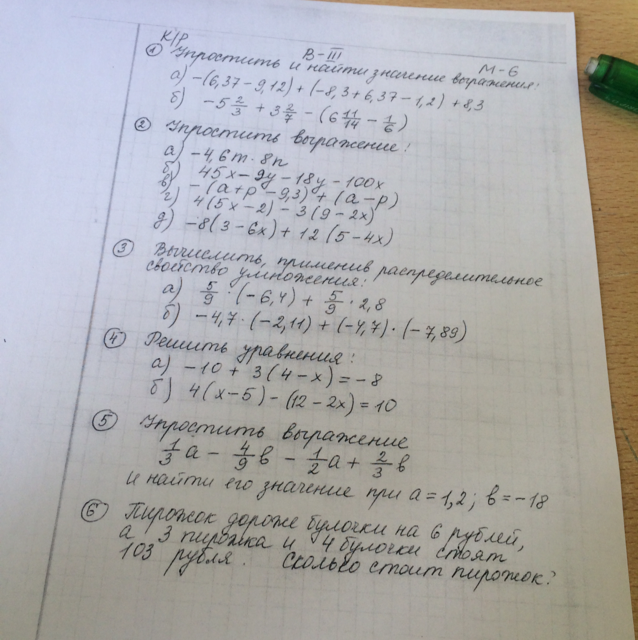 К/Р В-III М-6
① Упростить и найти значение выражения:
а) -(6,37-9,12)+(-8,3+6,37-1,2)+8,3
б) -5 2/3 + 3 2/7 - (6 11/14 - 1/6)
② Упростить выражение:
а) -4,6m·8n
б) 45x-9y-18y-100x
в) -(a+p-9,3)+(a-p)
г) 4(5x-2)-3(9-2x)
д) -8(3-6x)+12(5-4x)
③ Вычислить, применив распределительное
свойство умножения:
а) 5/9·(-6,4)+5/9·2,8
б) -4,7·(-2,11)+(-4,7)·(-7,89)
④ Решить уравнения:
а) -10+3(4-x)=-8
б) 4(x-5)-(12-2x)=10
⑤ Упростить выражение
1/3 a - 4/9 b - 1/2 a + 2/3 b
и найти его значение при a=1,2; b=-18
⑥ Пирожок дороже булочки на 6 рублей,
а 3 пирожка и 4 булочки стоят
103 рубля. Сколько стоит пирожок?